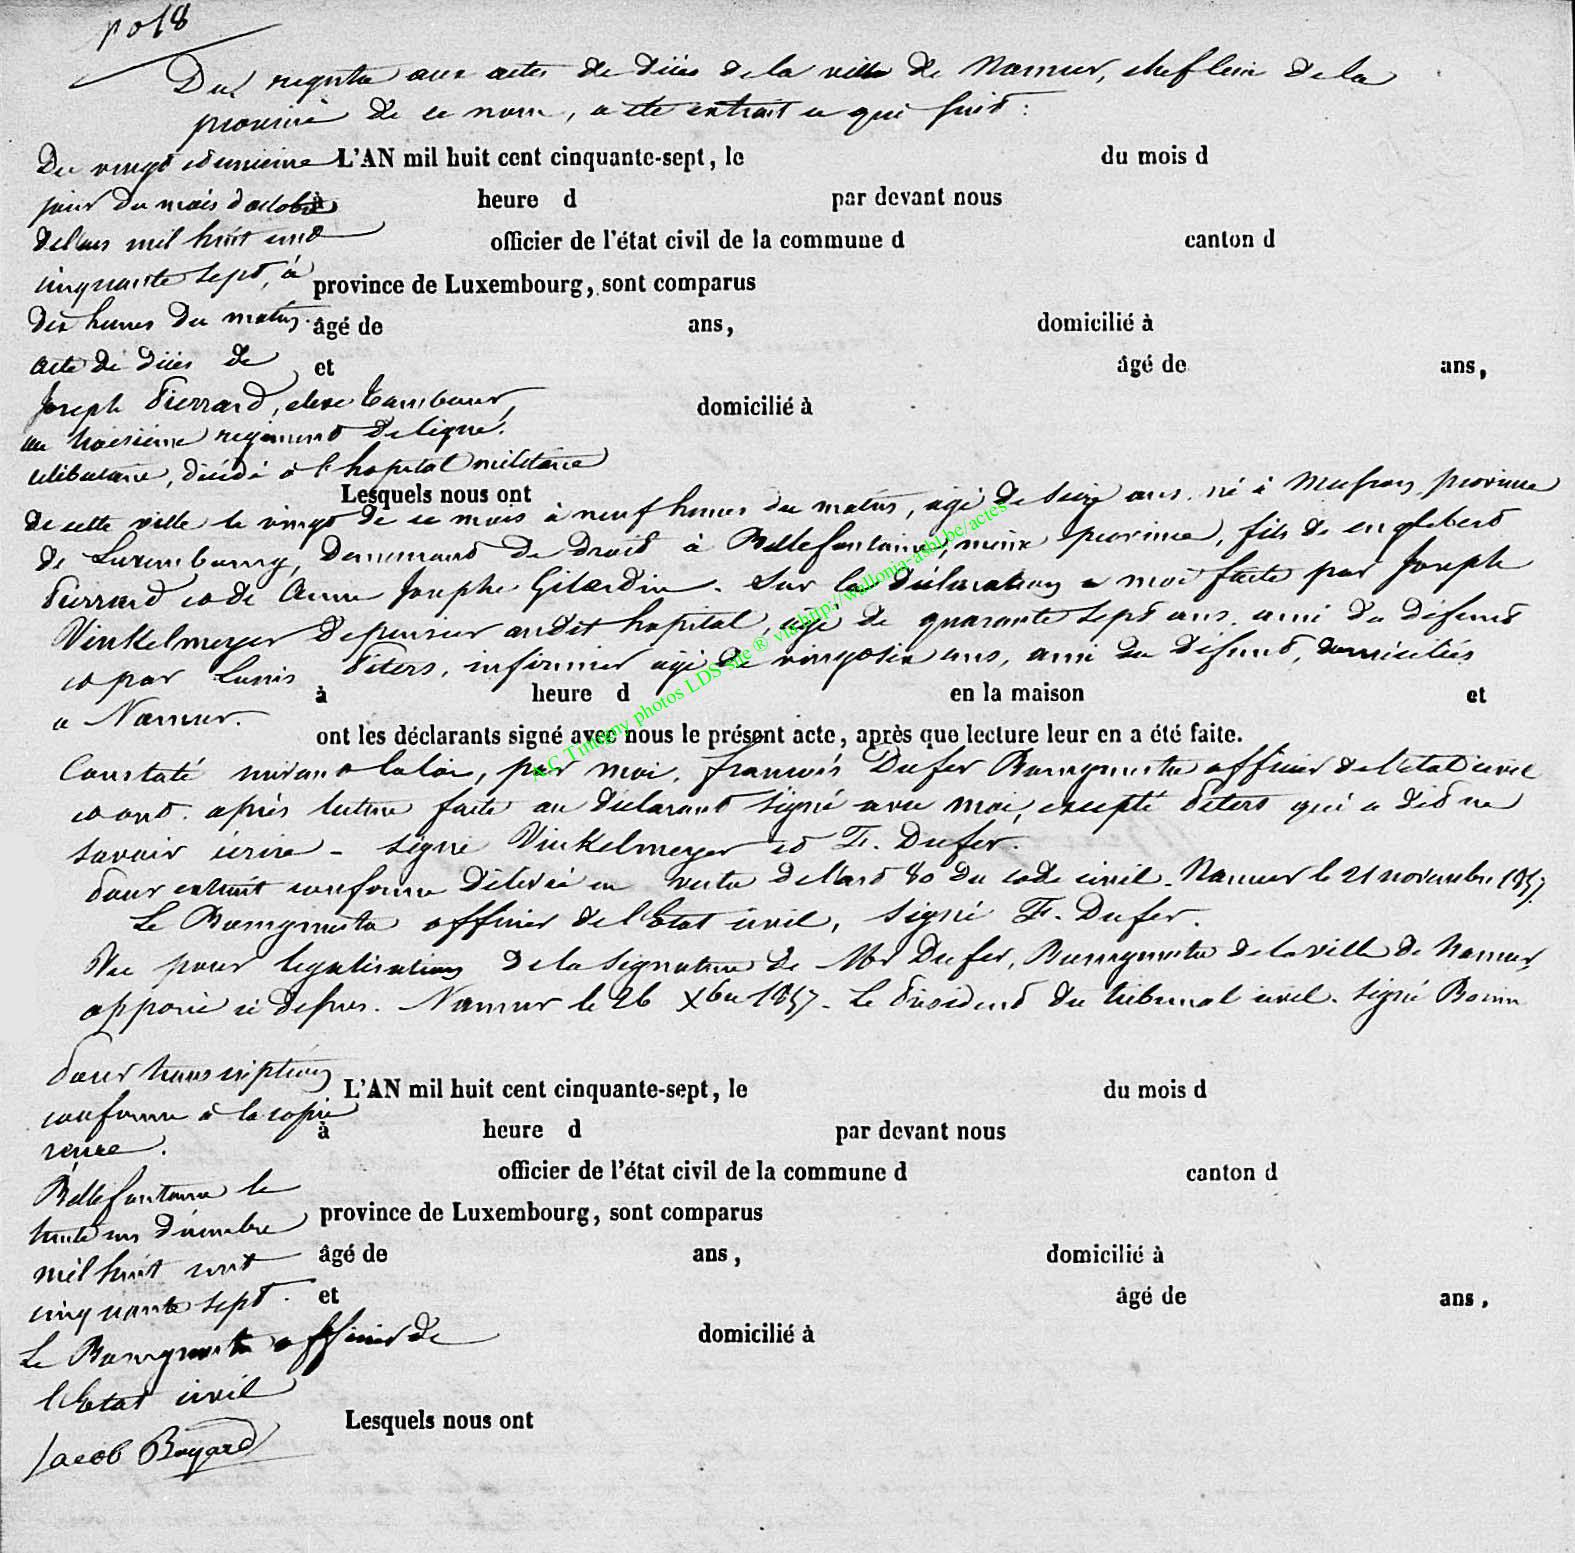 no 18
Du registre aux actes de décès de la ville de Namur, chef lieu de la
province de ce nom, a été extrait ce qui suit :
Du vingt et unième L'AN mil huit cent cinquante-sept, le du mois d
jour du mois d'octobre à heure d par devant nous
de l'an mil huit cent officier de l'état civil de la commune d canton d
cinquante sept, à province de Luxembourg, sont comparus
dix heures du matin. âgé de ans, domicilié à
acte de décès de et âgé de ans,
Joseph Pierrard, élève tambour, domicilié à
au troisième régiment de ligne.
célibataire, décédé à l'hopital militaire
Lesquels nous ont
de cette ville le vingt de ce mois à neuf heures du matin, âgé de seize ans, né à province
de Luxembourg, demeurant de droit à Bellefontaine, même province, fils de englebert
Pierrard et de Anne Josephe Gilardin. Sur la déclaration a moi faite par Joseph
Vinkelmeyer dépensier audit hopital, âgé de quarante sept ans, ami du défunt
et par Louis Peters, infirmier âgé de vingt six ans, ami du défunt, domiciliés
à heure d en la maison et
a Namur.
ont les déclarants signé avec nous le présent acte, après que lecture leur en a été faite.
Constaté suivant la loi, par moi, françois Dufer Bourgmestre officier de l'etat civil
et ont. après lecture faite au déclarant signé avec moi, excepté Peters qui a dit ne
savoir écrire - signé Vinkelmeyer et F. Dufer.
Pour extrait conforme délivré en vertu de l'art 80 du code civil. Namur le 21 novembre 1857.
Le Bourgmestre officier de l'Etat civil, signé F. Dufer.
Vu pour légalisation de la signature de Mr Dufer, Bourgmestre de la ville de Namur,
apposée ci dessus. Namur le 26 Xbre 1857. Le Président du tribunal civil. signé
Pour transcription
L'AN mil huit cent cinquante-sept, le du mois d
conforme à la copie
à heure d par devant nous
reçue.
officier de l'état civil de la commune d canton d
Bellefontaine le
province de Luxembourg, sont comparus
trente un décembre
mil huit cent âgé de ans, domicilié à
cinquante sept. et âgé de ans,
Le Bourgmestre officier de domicilié à
l'Etat civil
Lesquels nous ont
Jacob Bayard
A.C Tintigny photos LDS site ® via http://wallonia-asbl.be/actes